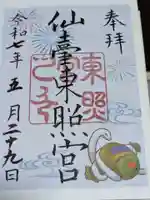 奉拝
仙臺東照宮
東照
令和七年五月二十九日